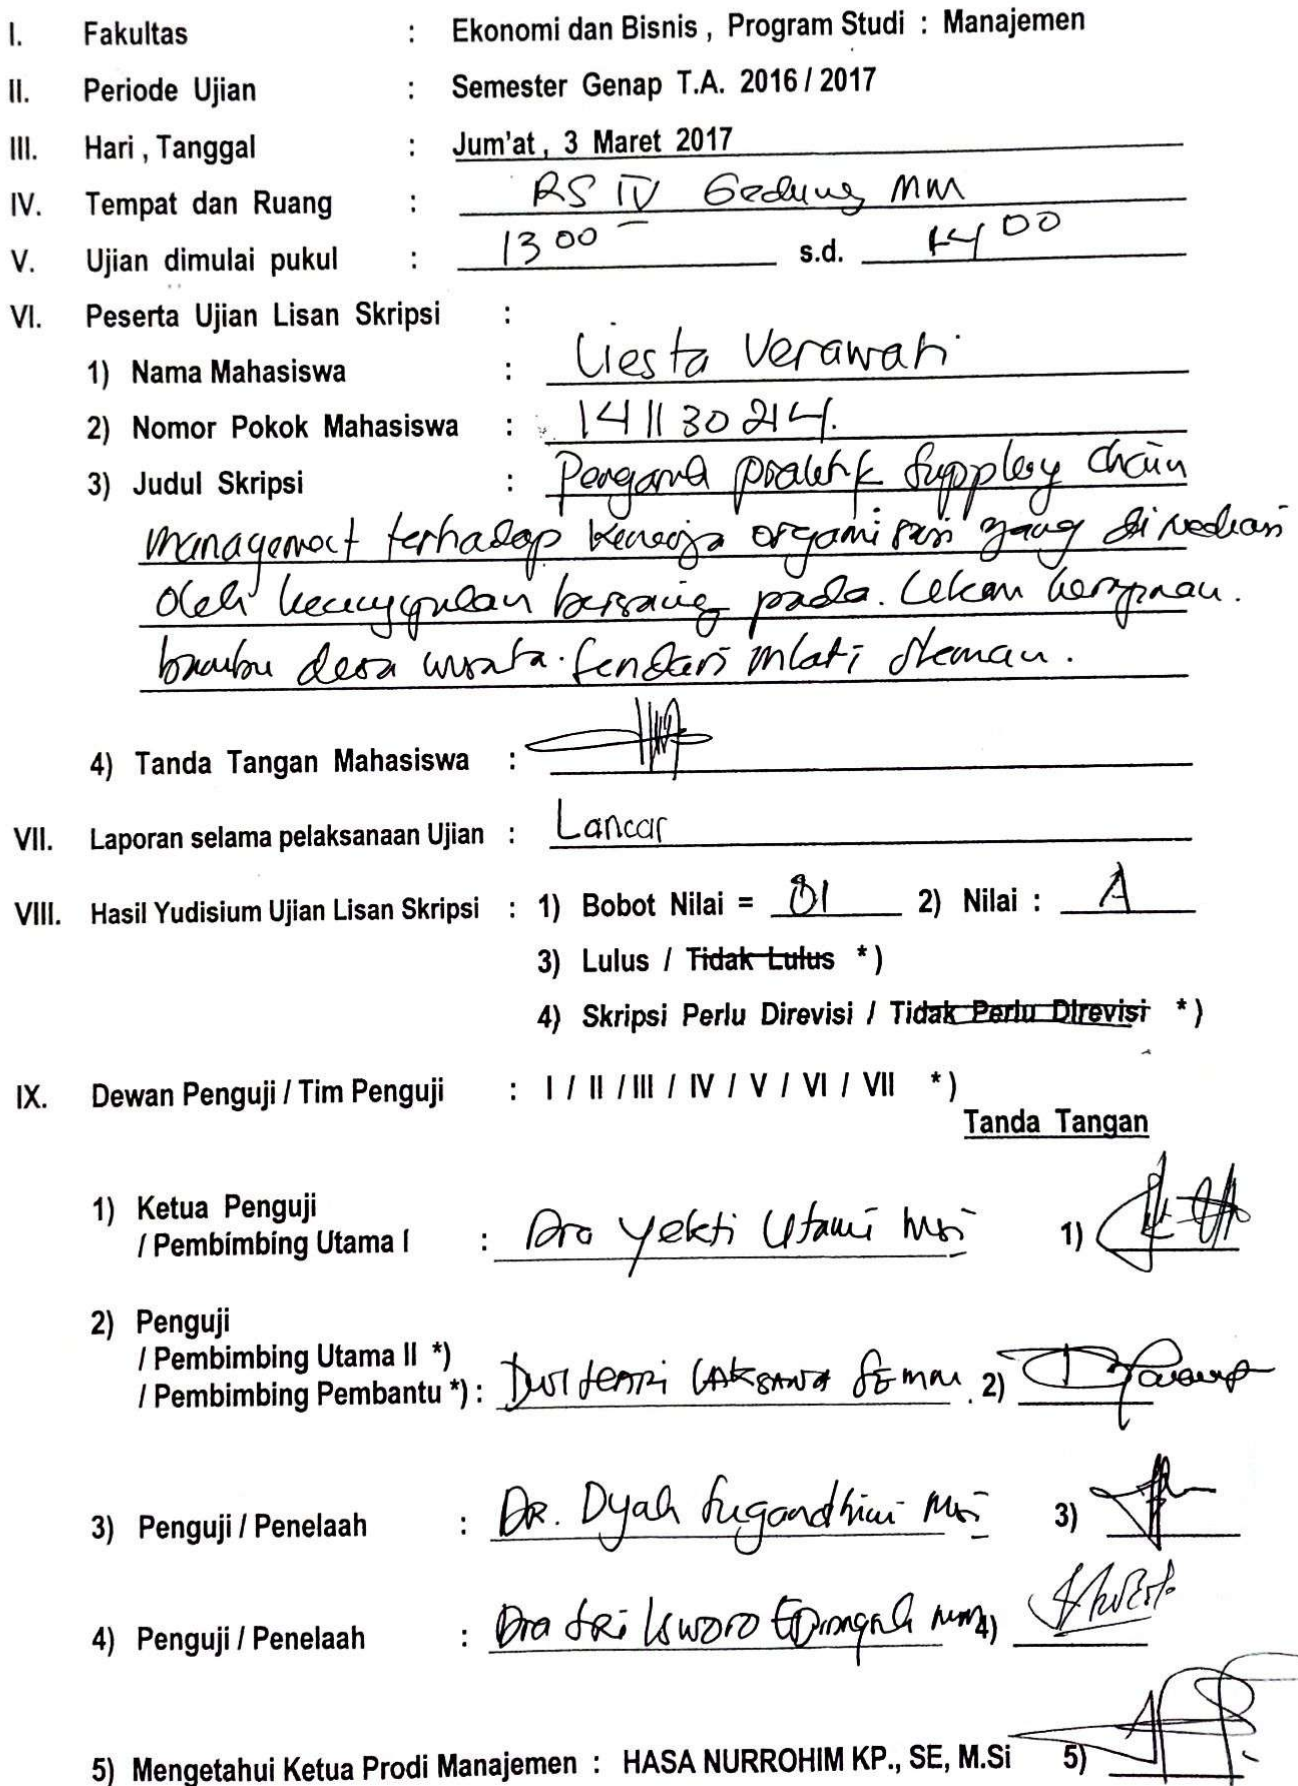 I. Fakultas : Ekonomi dan Bisnis , Program Studi : Manajemen
II. Periode Ujian : Semester Genap T.A. 2016 / 2017
III. Hari , Tanggal : Jum'at , 3 Maret 2017
IV. Tempat dan Ruang : RS IV Gedung MM
V. Ujian dimulai pukul : 13 00 s.d. 14 00
VI. Peserta Ujian Lisan Skripsi :
1) Nama Mahasiswa : Liesta Verawati
2) Nomor Pokok Mahasiswa : 141130214.
3) Judul Skripsi : praktik chain
management terhadap organisasi yang di mediasi
oleh bersaing pada.
bambu desa wisata. Sendari mlati Sleman.
4) Tanda Tangan Mahasiswa :
VII. Laporan selama pelaksanaan Ujian : Lancar
VIII. Hasil Yudisium Ujian Lisan Skripsi : 1) Bobot Nilai = 81 2) Nilai : A
3) Lulus / Tidak Lulus *)
4) Skripsi Perlu Direvisi / Tidak Perlu Direvisi *)
IX. Dewan Penguji / Tim Penguji : I / II / III / IV / V / VI / VII *)
Tanda Tangan
1) Ketua Penguji
/ Pembimbing Utama I : Dra Yekti Utami Msi 1)
2) Penguji
/ Pembimbing Utama II *)
/ Pembimbing Pembantu *) : LAKSANA SE MM 2)
3) Penguji / Penelaah : DR. Dyah Sugandhini Msi 3)
4) Penguji / Penelaah : Dra Sri MM 4)
5) Mengetahui Ketua Prodi Manajemen : HASA NURROHIM KP., SE, M.Si 5)